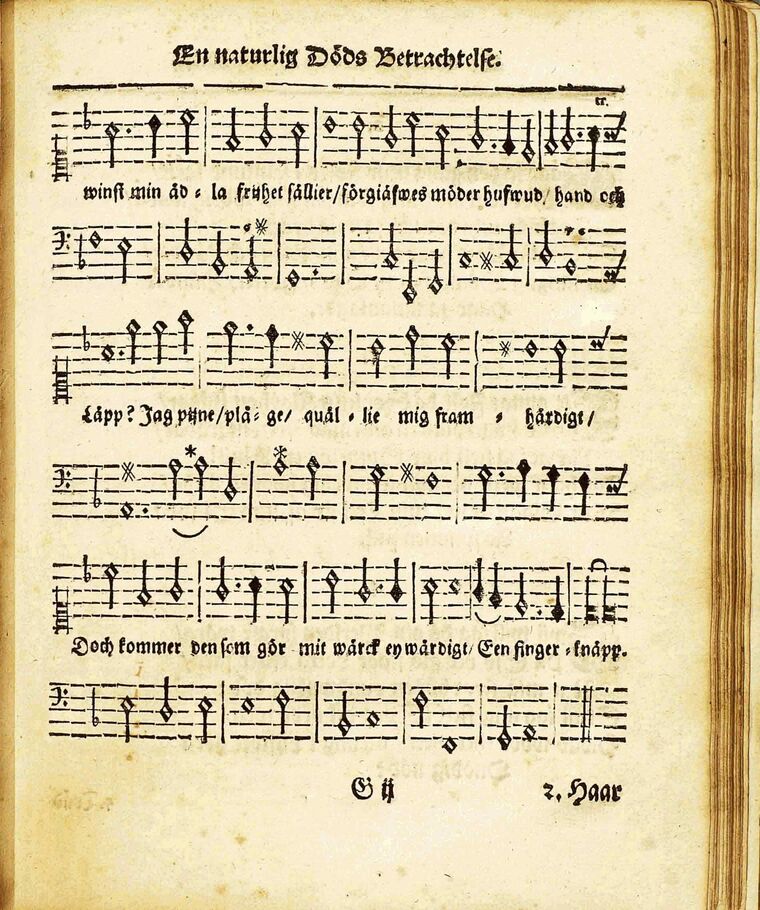 En naturlig Döds Betrachtelse.
tr.
winst min äd - la frijhet sällier/ förgiäfwes möder hufwud/ hand och
Läpp? Jag pijne/ plå - ge/ quäl - lie mig fram - härdigt/
Doch kommer den som gör mit wärck ey wärdigt/ Een finger - knäpp.
G ij
2. Haar